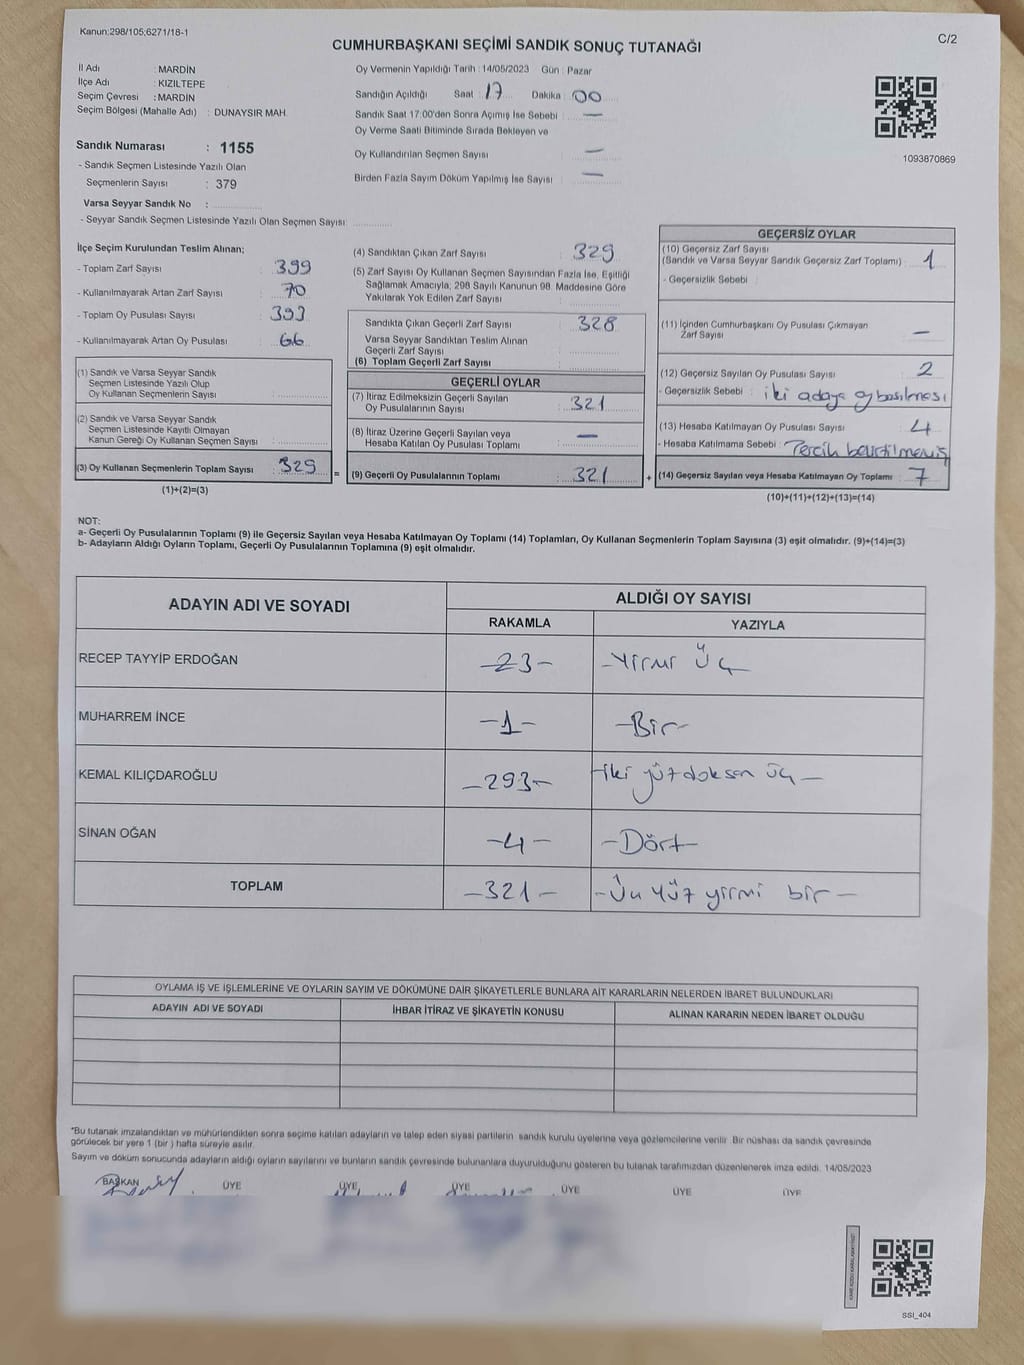 Kanun:298/105;6271/18-1
C/2
CUMHURBAŞKANI SEÇİMİ SANDIK SONUÇ TUTANAĞI
İl Adı : MARDİN
İlçe Adı : KIZILTEPE
Seçim Çevresi : MARDİN
Seçim Bölgesi (Mahalle Adı) : DUNAYSIR MAH.
Sandık Numarası : 1155
- Sandık Seçmen Listesinde Yazılı Olan
Seçmenlerin Sayısı : 379
Varsa Seyyar Sandık No :
- Seyyar Sandık Seçmen Listesinde Yazılı Olan Seçmen Sayısı:
Oy Vermenin Yapıldığı Tarih : 14/05/2023 Gün : Pazar
Sandığın Açıldığı Saat : 17 Dakika : 00
Sandık Saat 17:00'den Sonra Açımış İse Sebebi : —
Oy Verme Saati Bitiminde Sırada Bekleyen ve
Oy Kullandırılan Seçmen Sayısı : —
Birden Fazla Sayım Döküm Yapılmış İse Sayısı : —
1093870869
İlçe Seçim Kurulundan Teslim Alınan;
- Toplam Zarf Sayısı : 399
- Kullanılmayarak Artan Zarf Sayısı : 70
- Toplam Oy Pusulası Sayısı : 393
- Kullanılmayarak Artan Oy Pusulası : 66
(1) Sandık ve Varsa Seyyar Sandık
Seçmen Listesinde Yazılı Olup
Oy Kullanan Seçmenlerin Sayısı :
(2) Sandık ve Varsa Seyyar Sandık
Seçmen Listesinde Kayıtlı Olmayan
Kanun Gereği Oy Kullanan Seçmen Sayısı :
(3) Oy Kullanan Seçmenlerin Toplam Sayısı : 329 =
(1)+(2)=(3)
(4) Sandıktan Çıkan Zarf Sayısı : 329
(5) Zarf Sayısı Oy Kullanan Seçmen Sayısından Fazla İse, Eşitliği
Sağlamak Amacıyla, 298 Sayılı Kanunun 98. Maddesine Göre
Yakılarak Yok Edilen Zarf Sayısı :
Sandıkta Çıkan Geçerli Zarf Sayısı : 328
Varsa Seyyar Sandıktan Teslim Alınan
Geçerli Zarf Sayısı :
(6) Toplam Geçerli Zarf Sayısı :
GEÇERLİ OYLAR
(7) İtiraz Edilmeksizin Geçerli Sayılan
Oy Pusulalarının Sayısı : 321
(8) İtiraz Üzerine Geçerli Sayılan veya
Hesaba Katılan Oy Pusulaları Toplamı : —
(9) Geçerli Oy Pusulalarının Toplamı : 321 +
GEÇERSİZ OYLAR
(10) Geçersiz Zarf Sayısı
(Sandık ve Varsa Seyyar Sandık Geçersiz Zarf Toplamı) : 1
- Geçersizlik Sebebi :
(11) İçinden Cumhurbaşkanı Oy Pusulası Çıkmayan
Zarf Sayısı : —
(12) Geçersiz Sayılan Oy Pusulası Sayısı : 2
- Geçersizlik Sebebi : iki adaya oy basılması
(13) Hesaba Katılmayan Oy Pusulası Sayısı : 4
- Hesaba Katılmama Sebebi : Tercih belirtilmemiş
(14) Geçersiz Sayılan veya Hesaba Katılmayan Oy Toplamı : 7
(10)+(11)+(12)+(13)=(14)
NOT:
a- Geçerli Oy Pusulalarının Toplamı (9) ile Geçersiz Sayılan veya Hesaba Katılmayan Oy Toplamı (14) Toplamları, Oy Kullanan Seçmenlerin Toplam Sayısına (3) eşit olmalıdır. (9)+(14)=(3)
b- Adayların Aldığı Oyların Toplamı, Geçerli Oy Pusulalarının Toplamına (9) eşit olmalıdır.
ADAYIN ADI VE SOYADI
ALDIĞI OY SAYISI
RAKAMLA YAZIYLA
RECEP TAYYİP ERDOĞAN -23- -Yirmi Üç
MUHARREM İNCE -1- -Bir-
KEMAL KILIÇDAROĞLU -293- -iki yüz doksan üç-
SİNAN OĞAN -4- -Dört-
TOPLAM -321- -Üç Yüz yirmi bir-
OYLAMA İŞ VE İŞLEMLERİNE VE OYLARIN SAYIM VE DÖKÜMÜNE DAİR ŞİKAYETLERLE BUNLARA AİT KARARLARIN NELERDEN İBARET BULUNDUKLARI
ADAYIN ADI VE SOYADI İHBAR İTİRAZ VE ŞİKAYETİN KONUSU ALINAN KARARIN NEDEN İBARET OLDUĞU
*Bu tutanak imzalandıktan ve mühürlendikten sonra seçime katılan adayların ve talep eden siyasi partilerin sandık kurulu üyelerine veya gözlemcilerine verilir. Bir nüshası da sandık çevresinde
görülecek bir yere 1 (bir) hafta süreyle asılır.
Sayım ve döküm sonucunda adayların aldığı oyların sayılarını ve bunların sandık çevresinde bulunanlara duyurulduğunu gösteren bu tutanak tarafımızdan düzenlenerek imza edildi. 14/05/2023
BAŞKAN ÜYE ÜYE ÜYE ÜYE ÜYE ÜYE
SSI_404